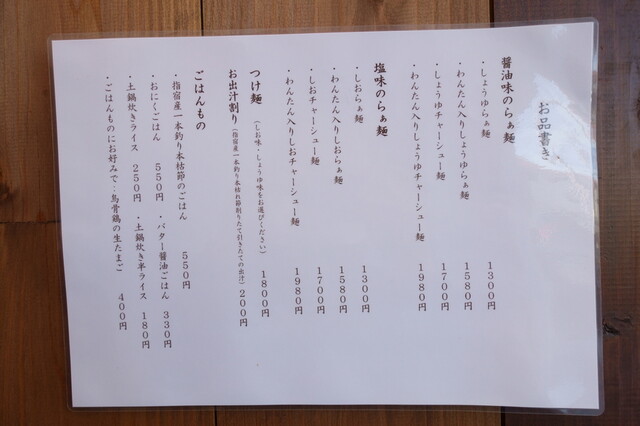 お品書き
醤油味のらぁ麺
・しょうゆらぁ麺 1300円
・わんたん入りしょうゆらぁ麺 1580円
・しょうゆチャーシュー麺 1700円
・わんたん入りしょうゆチャーシュー麺 1980円
塩味のらぁ麺
・しおらぁ麺 1300円
・わんたん入りしおらぁ麺 1580円
・しおチャーシュー麺 1700円
・わんたん入りしおチャーシュー麺 1980円
つけ麺 (しお味・しょうゆ味をお選びください) 1800円
お出汁割り (指宿産一本釣り本枯れ節削りたて引きたての出汁) 200円
ごはんもの
・指宿産一本釣り本枯節のごはん 550円
・おにくごはん 550円 ・バター醤油ごはん 330円
・土鍋炊きライス 250円 ・土鍋炊き半ライス 180円
・ごはんものにお好みで‥烏骨鶏の生たまご 400円